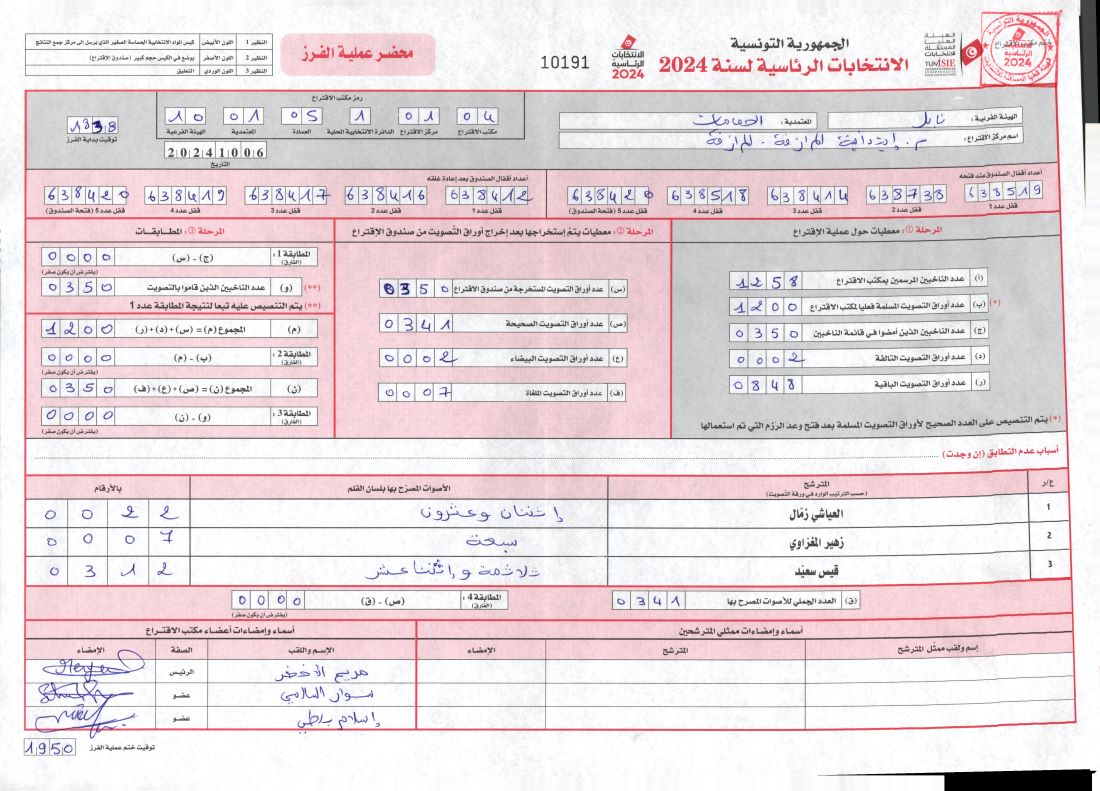 الجمهورية التونسية
الانتخابات الرئاسية لسنة 2024
الهيئة العليا المستقلة للانتخابات
TUNISIE
الانتخابات الرئاسية 2024
10191
محضر عملية الفرز
النظير 1 اللون الأبيض كيس المواد الانتخابية الحساسة الصغير الذي يرسل إلى مركز جمع النتائج
النظير 2 اللون الأصفر يوضع في الكيس حجم كبير (صندوق الاقتراع)
النظير 3 اللون الوردي التعليق
الهيئة الفرعية : نابل المعتمدية : الحمامات
اسم مركز الاقتراع : م. إبتدائية المرازقة. المرازقة
رمز مكتب الاقتراع
04 01 1 05 01 10
مكتب الاقتراع مركز الاقتراع الدائرة الانتخابية المحلية العمادة المعتمدية الهيئة الفرعية
20241006
التاريخ
توقيت بداية الفرز
أعداد أقفال الصندوق عند فتحه
638519 638738 638414 638518 638420
قفل عدد 1 قفل عدد 2 قفل عدد 3 قفل عدد 4 قفل عدد 5 (فتحة الصندوق)
أعداد أقفال الصندوق بعد إعادة غلقه
638412 638416 638417 638419 638420
قفل عدد 1 قفل عدد 2 قفل عدد 3 قفل عدد 4 قفل عدد 5 (فتحة الصندوق)
المرحلة ①: معطيات حول عملية الاقتراع
(أ) عدد الناخبين المرسمين بمكتب الاقتراع 1258
(*) (ب) عدد أوراق التصويت المسلمة فعليا لمكتب الاقتراع 1200
(ج) عدد الناخبين الذين أمضوا في قائمة الناخبين 0350
(د) عدد أوراق التصويت التالفة 0002
(ر) عدد أوراق التصويت الباقية 0848
(*) يتم التنصيص على العدد الصحيح لأوراق التصويت المسلمة بعد فتح وعد الرزم التي تم استعمالها
المرحلة ②: معطيات يتم إستخراجها بعد إخراج أوراق التصويت من صندوق الاقتراع
(س) عدد أوراق التصويت المستخرجة من صندوق الاقتراع 0350
(ص) عدد أوراق التصويت الصحيحة 0341
(ع) عدد أوراق التصويت البيضاء 0002
(ف) عدد أوراق التصويت الملغاة 0007
المرحلة ③: المطابقات
المطابقة 1: (الفارق) (ج) - (س) 0000
(يفترض أن يكون صفر)
(**) (و) عدد الناخبين الذين قاموا بالتصويت 0350
(**) يتم التنصيص عليه تبعا لنتيجة المطابقة عدد 1
(م) المجموع (م) = (س)+(د)+(ر) 1200
المطابقة 2: (الفارق) (ب) - (م) 0000
(يفترض أن يكون صفر)
(ن) المجموع (ن) = (ص)+(ع)+(ف) 0350
المطابقة 3: (الفارق) (و) - (ن) 0000
(يفترض أن يكون صفر)
أسباب عدم التطابق (إن وجدت)
ع/ر المترشح (حسب الترتيب الوارد في ورقة التصويت) الأصوات المصرح بها بلسان القلم بالأرقام
1 العياشي زمّال إثنان وعشرون 0022
2 زهير المغزاوي سبعة 0007
3 قيس سعيّد ثلاثمة و إثناعش 0312
(ق) العدد الجملي للأصوات المصرح بها 0341 المطابقة 4: (الفارق) (ص) - (ق) 0000
(يفترض أن يكون صفر)
أسماء وإمضاءات ممثلي المترشحين
إسم ولقب ممثل المترشح المترشح الإمضاء
أسماء وإمضاءات أعضاء مكتب الاقتراع
الإسم واللقب الصفة الإمضاء
مريم الأخضر الرئيس
نوار السالمي عضو
إسلام عضو
توقيت ختم عملية الفرز 1950